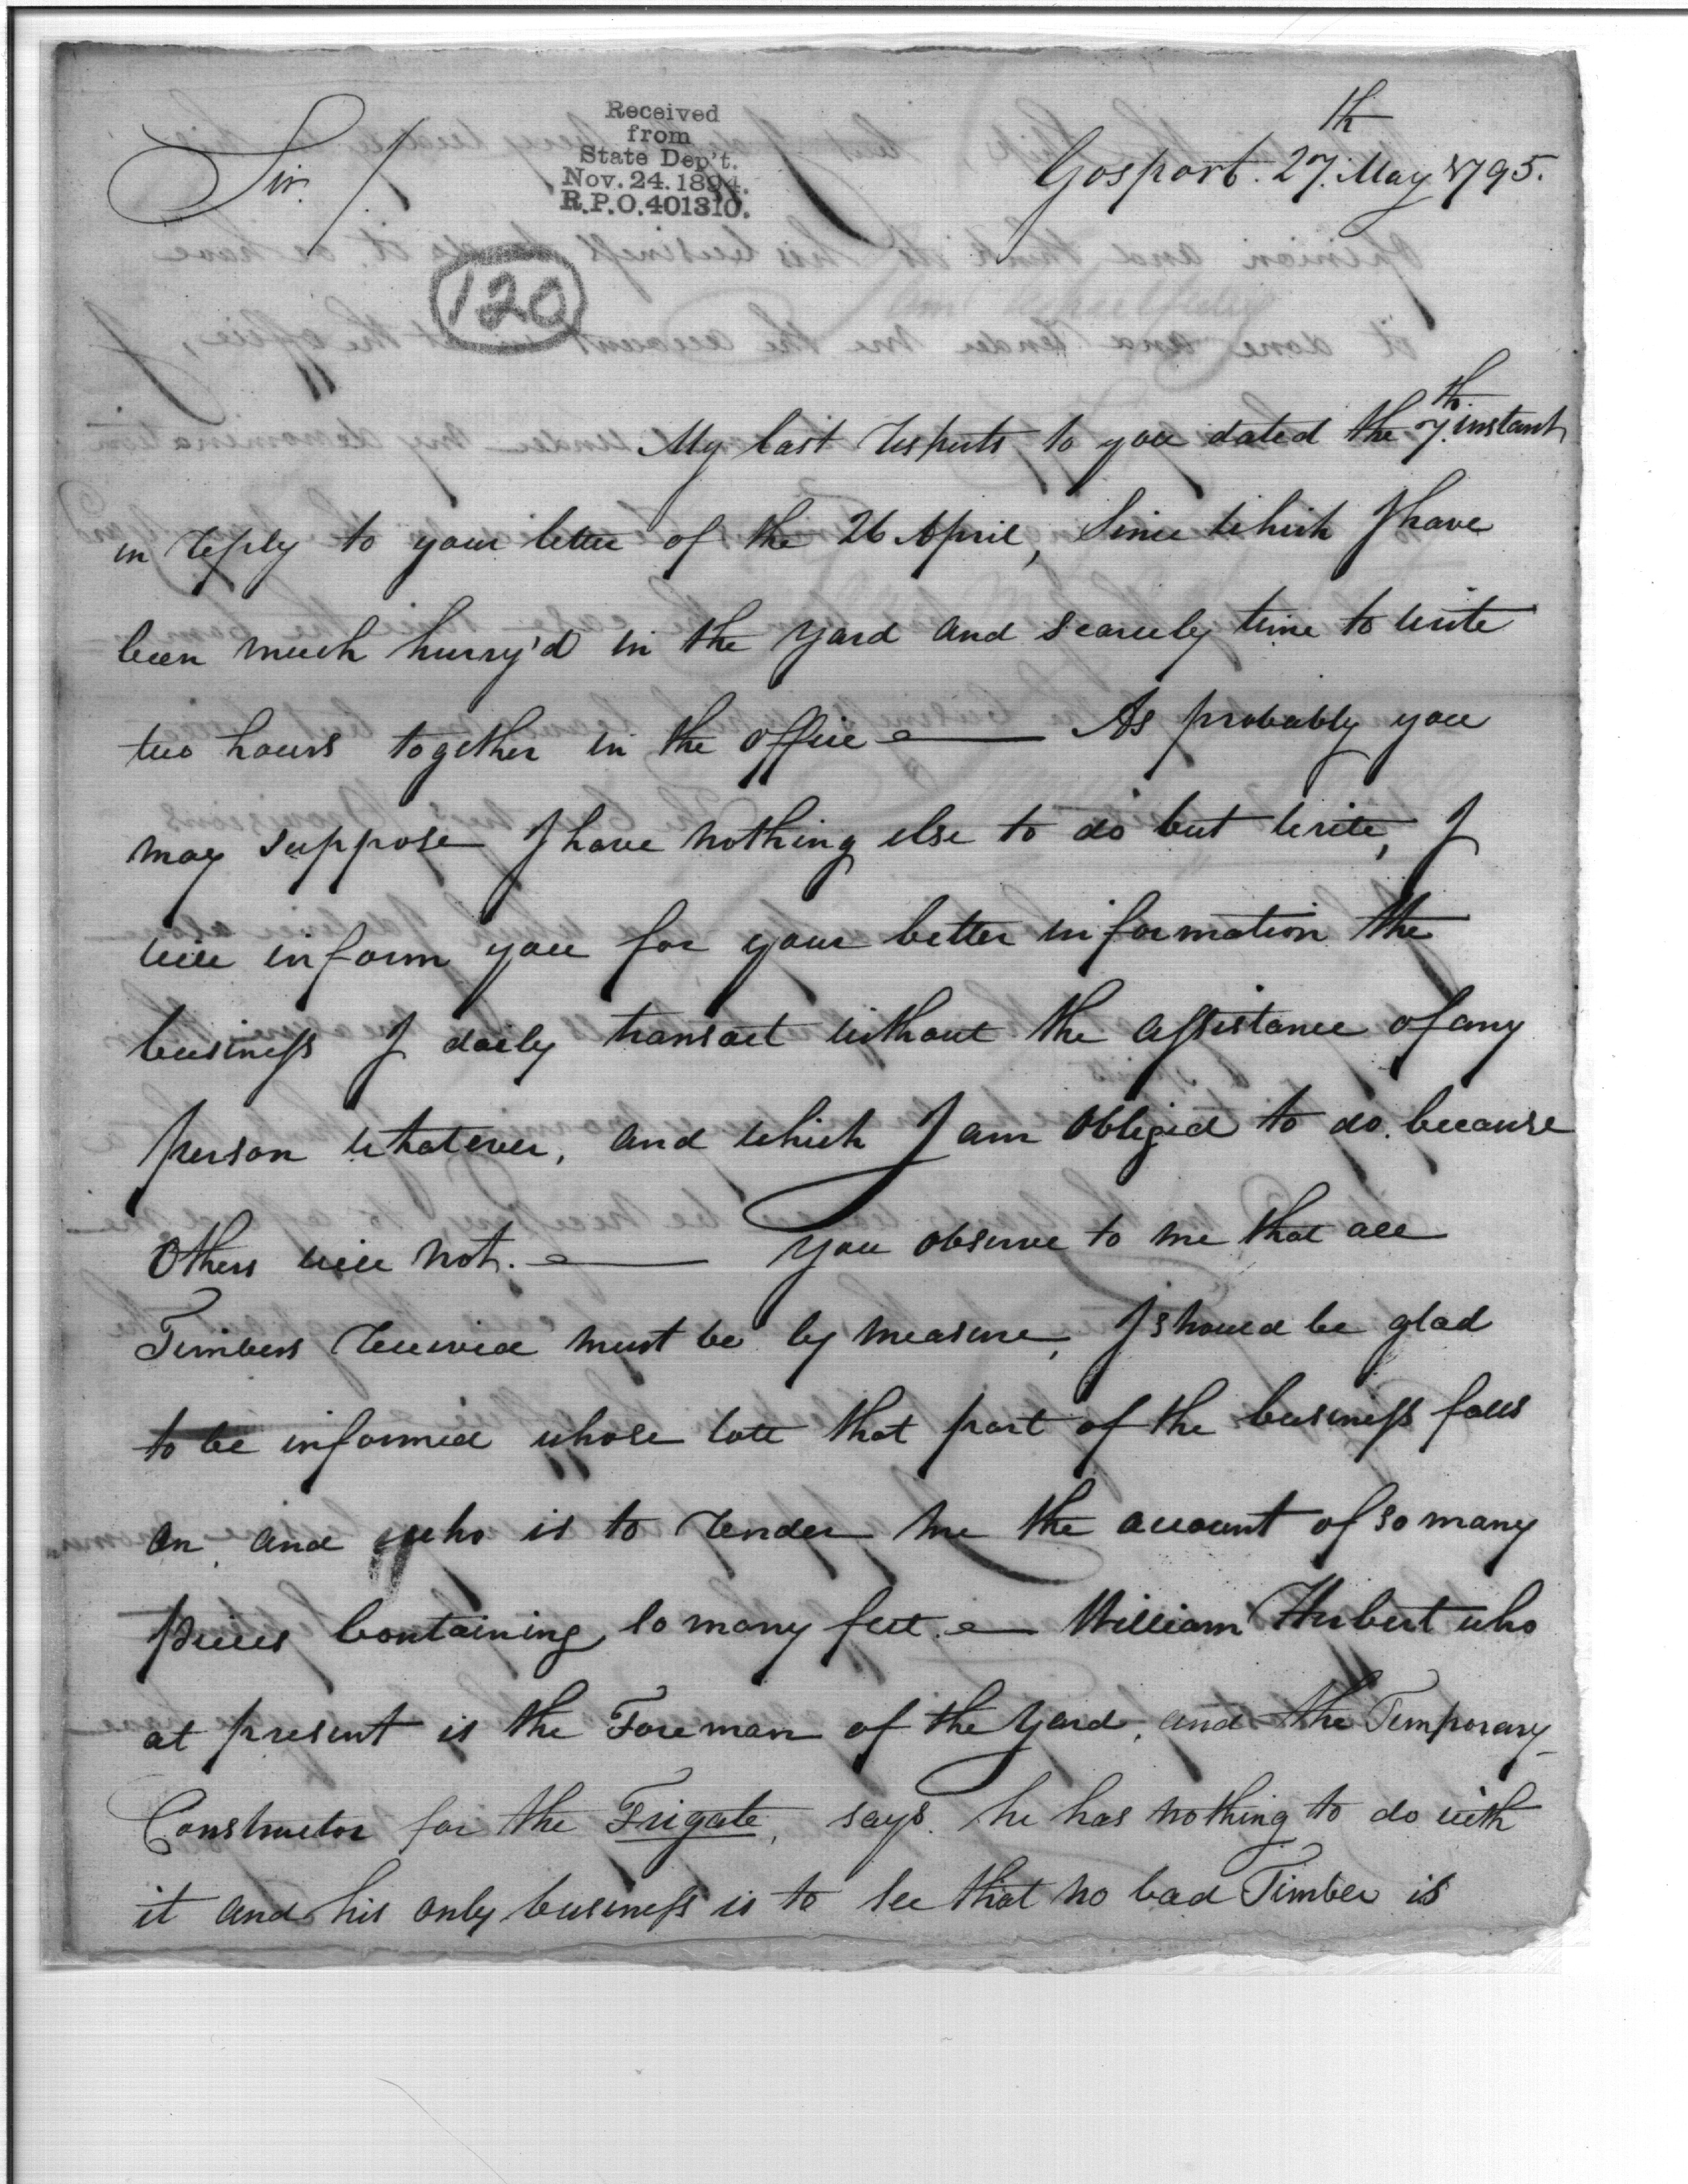 Sir /
Received
from
State Dep't.
Nov. 24. 1894.
R.P.O. 401310.
Gosport. 27th May 1795.
120
My last respects to you dated the 7th instant
in reply to your letter of the 26 April, Since which I have
been much hurry'd in the yard and scarcely time to write
two hours together in the office — As probably you
may suppose I have nothing else to do but write, I
will inform you for your better information the
business I daily transact without the assistance of any
person whatever, and which I am obliged to do because
Others will not. — You observe to me that all
Timbers received must be by measure, I should be glad
to be informed whose lott that part of the business falls
on and who is to render me the account of so many
pieces Containing so many feet. — William Hubert who
at present is the Foreman of the yard, and the Temporary
Constructor for the Frigate, says he has nothing to do with
it and his only business is to see that no bad Timber is